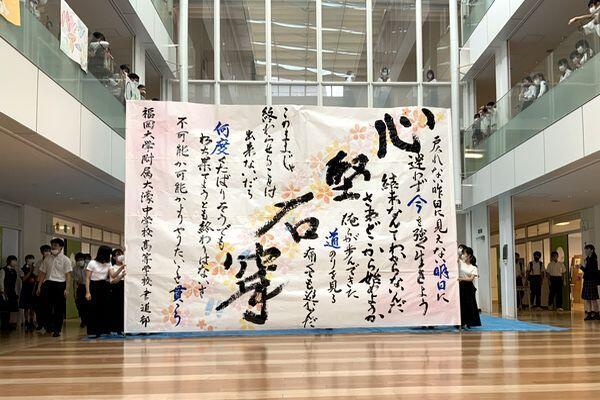 戻れない昨日に見えない明日に
迷わず今を強く生きよう
心堅石穿
結末なんてわからないんだ
さあどこから始めようか
俺らが歩んできた
道のりを見ろ
痛くても進むんだ
このままじゃ
終わらせることは
出来ないだろ
何度くたばりそうでも
朽ち果てようとも終わりはないさ
不可能か可能かよりやりたいことを貫こう
福岡大学附属大濠中学校高等学校書道部